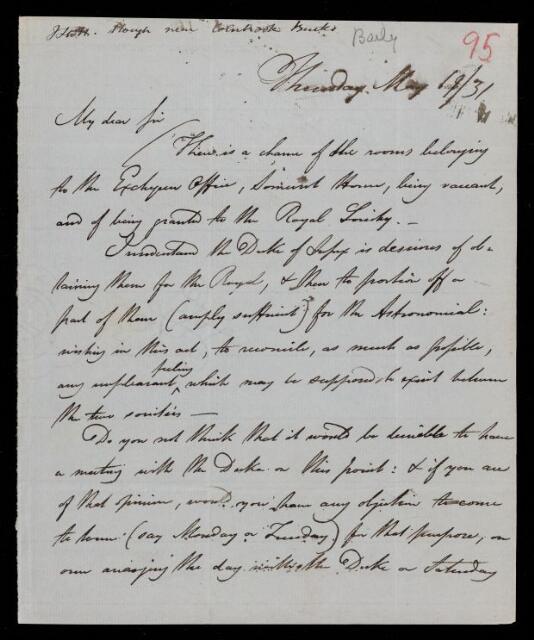 Slough near Colnbrook Bucks
Baily
95
Thursday May 19/31
My dear Sir
There is a chance of the rooms belonging
to the Exchequer Office, Somerset House, being vacant,
and of being granted to the Royal Society. —
I understand the Duke of Sussex is desirous of ob-
taining them for the Royal, & then to portion off a
part of them (amply sufficient) for the Astronomical:
wishing in this act, to reconcile, as much as possible,
any unpleasant feeling, which may be supposed to exist between
the two societies —
Do you not think that it would be desirable to have
a meeting with the Duke on this point: & if you are
of that opinion, would you have any objection to come
to town (say Monday or Tuesday) for that purpose, on
our arranging the day with the Duke on Saturday